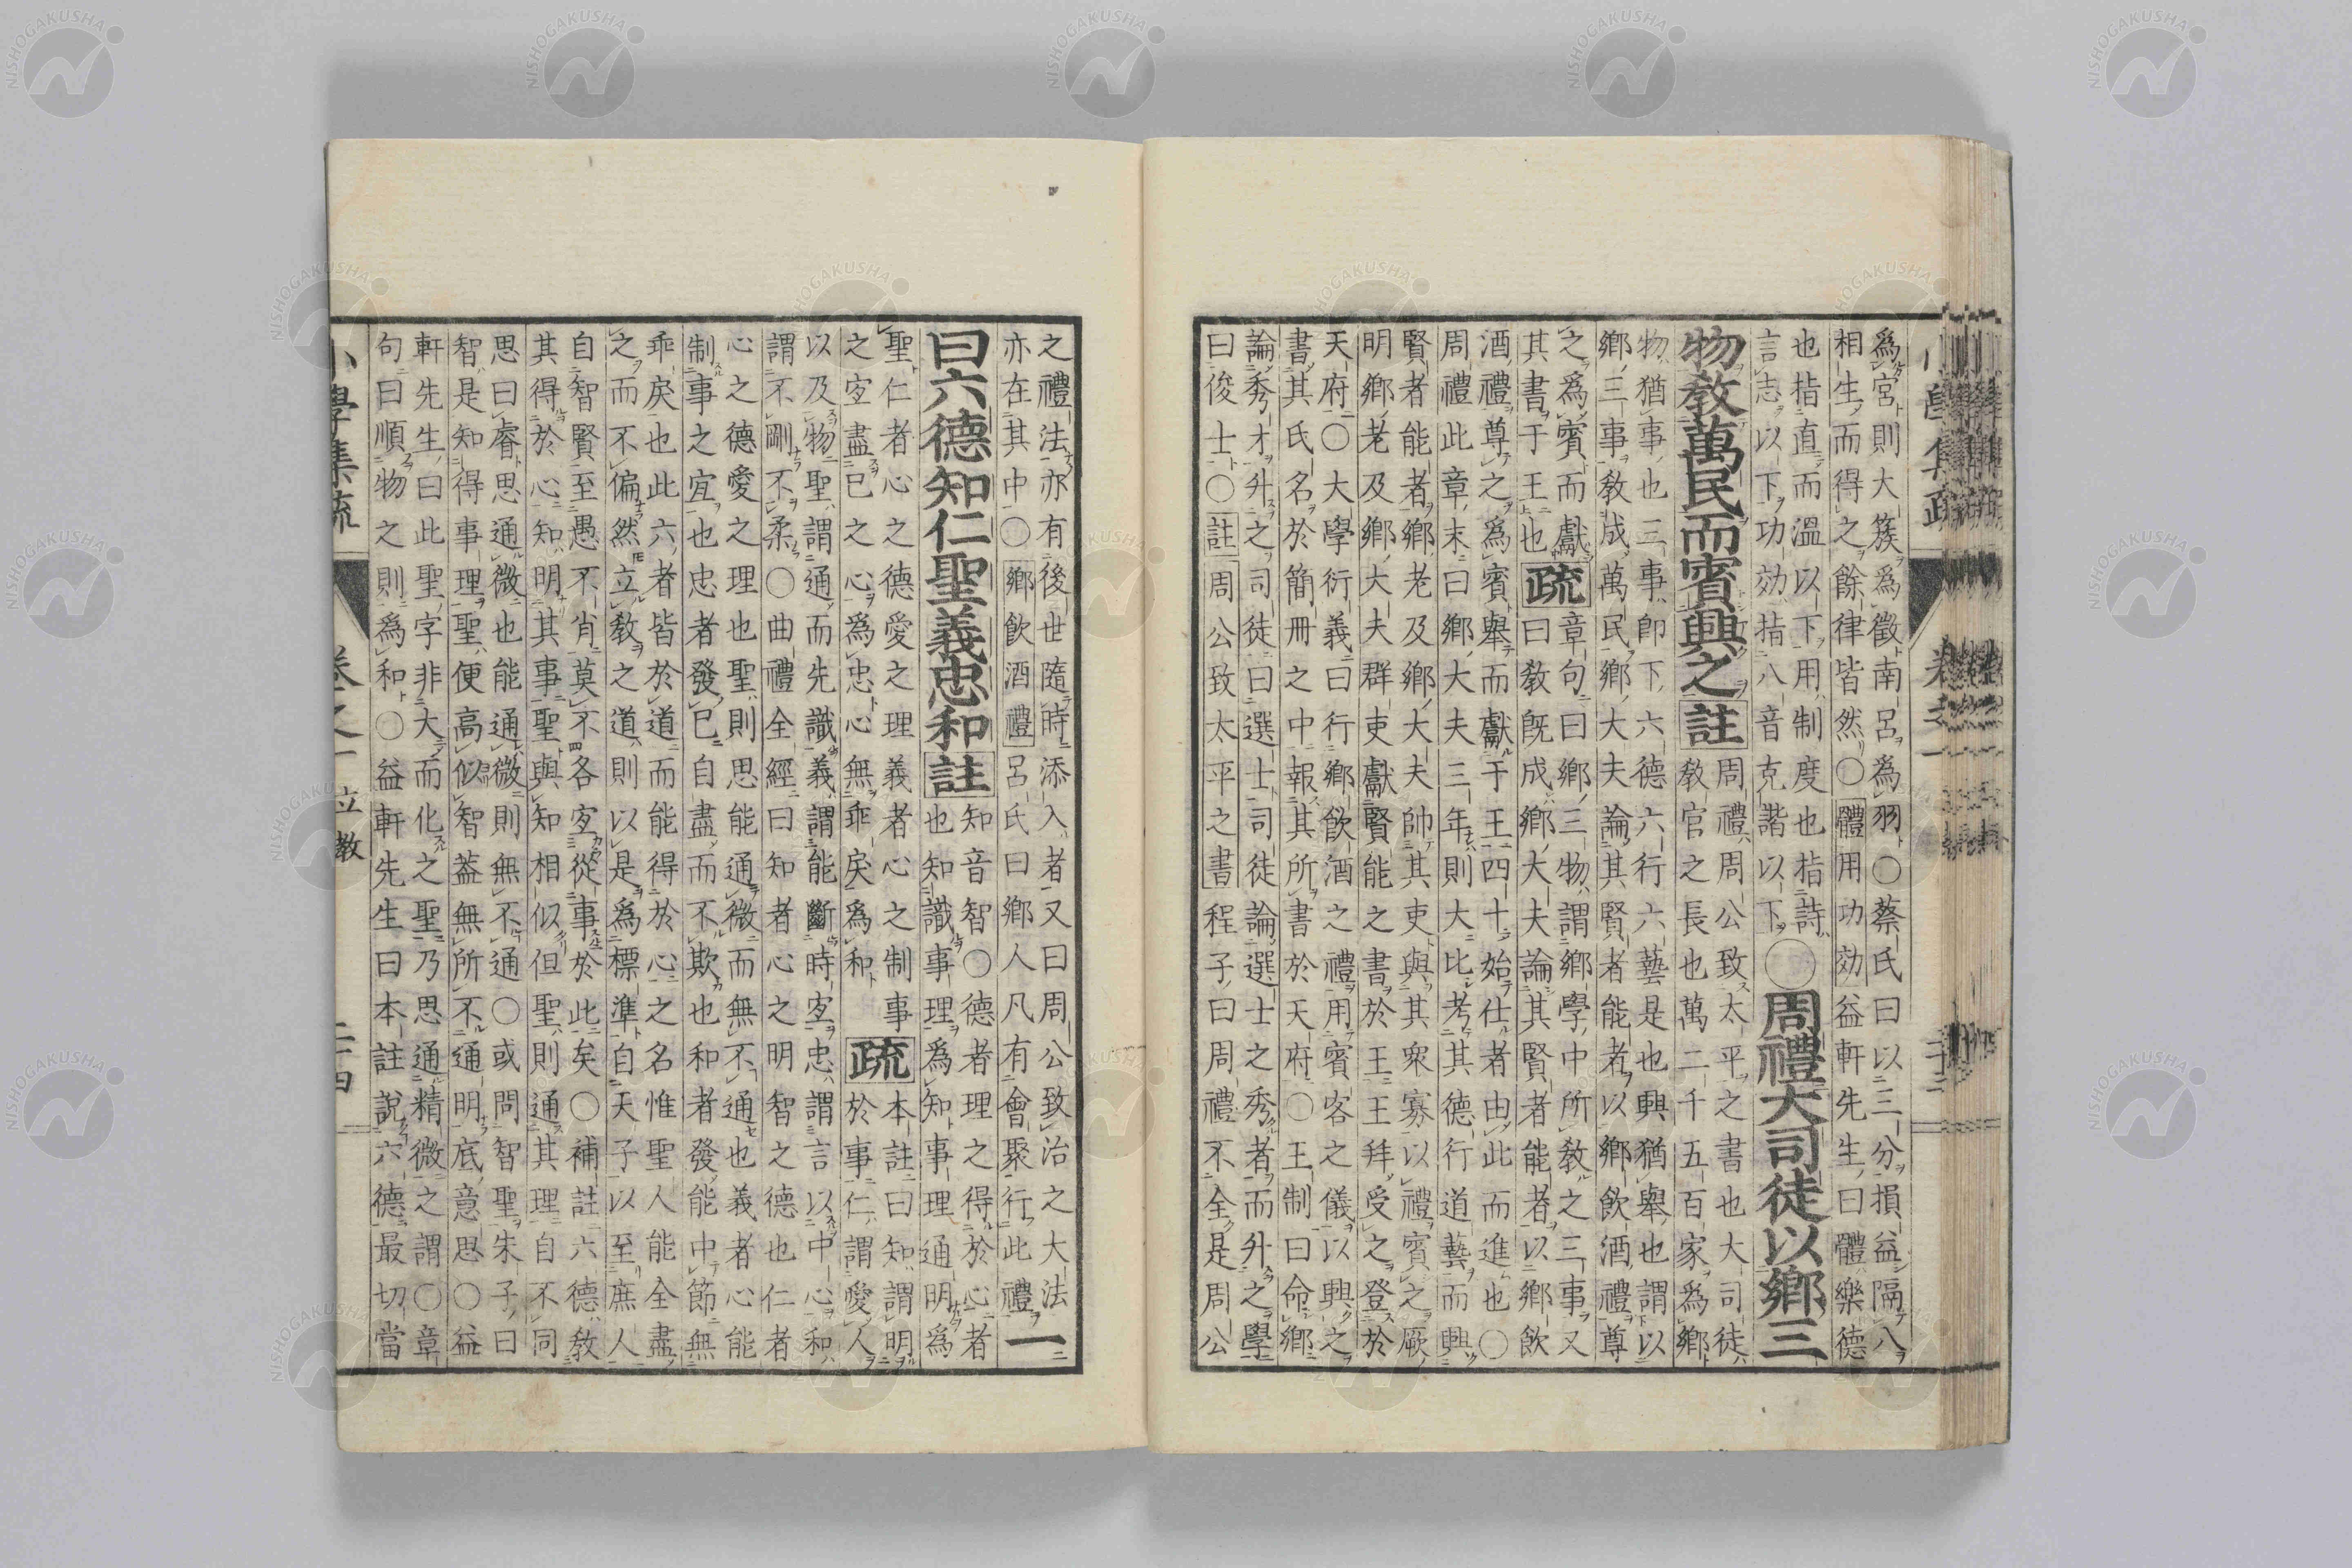 爲宮則大簇爲徵南呂爲羽○蔡氏曰以三分損益隔八
相生而得之餘律皆然○體用功効益軒先生曰體樂德
也指直而溫以下用制度也指詩
言志以下功効指八音克諧以下
○周禮大司徒以鄕三
物敎萬民而賓興之註
周禮周公致太平之書也大司徒
敎官之長也萬二千五百家爲鄕
物猶事也三事卽下六德六行六藝是也興猶擧也謂以
鄕三事敎成萬民鄕大夫論其賢者能者以鄕飮酒禮尊
之爲賓而獻
其書于王也
疏
章句曰鄕三物謂鄕學中所敎之三事又
曰敎旣成鄕大夫論其賢者能者以鄕飮
酒禮尊之爲賓擧而獻于王四十始仕者由此而進也○
周禮此章末曰鄕大夫三年則大比考其德行道藝而興
賢者能者鄕老及鄕大夫帥其吏與其衆寡以禮賓之厥
明鄕老及鄕大夫群吏獻賢能之書於王王拜受之登於
天府○大學衍義曰行鄕飮酒之禮用賓客之儀以興之
書其氏名於簡冊之中報其所書於天府○王制曰命鄕
論秀才升之司徒曰選士司徒論選士之秀者而升之學
曰俊士○註周公致太平之書程子曰周禮不全是周公
小學集疏 卷之一
之禮法亦有後世隨時添入者又曰周公致治之大法
亦在其中○鄕飮酒禮呂氏曰鄕人凡有會聚行此禮
一
曰六德知仁聖義忠和註
知音智○德者理之得於心者
也知識事理爲知事理通明爲
聖仁者心之德愛之理義者心之制事
之宜盡己之心爲忠心無乖戾爲和
疏
本註曰知謂明
於事仁謂愛人
以及物聖謂通而先識義謂能斷時宜忠謂言以中心和
謂不剛不柔○曲禮全經曰知者心之明智之德也仁者
心之德愛之理也聖則思能通微而無不通也義者心能
制事之宜也忠者發己自盡而不欺也和者發能中節無
乖戾也此六者皆於道而能得於心之名惟聖人能全盡
之而不偏然立敎之道則以是爲標準自天子以至庶人
自智賢至愚不肖莫不各宜從事於此矣○補註六德敎
其得於心知明其事聖與知相似但聖則通其理自不同
思曰睿思通微也能通微則無不通○或問智聖朱子曰
智是知得事理聖便高似智蓋無所不通明底意思○益
軒先生曰此聖字非大而化之之聖乃思通精微之謂○章
句曰順物之則爲和○益軒先生曰本註說六德最切當
小學集疏 卷之一 立敎 二十四